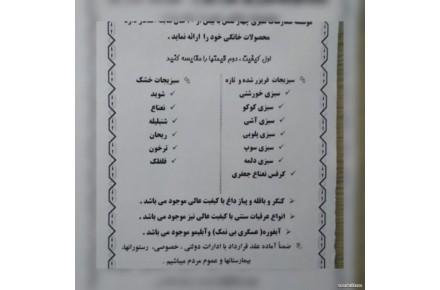 موسسه سفارشات سبزی چهار فصل با بیش از سال سابقه افتخار دارد
محصولات خانگی خود را ارائه نماید .
اول کیفیت ، دوم قیمتها را مقایسه کنید
سبزیجات فریزر شده و تازه
سبزی خورشتی
سبزی کوکو
سبزی آشی
سبزی پلویی
سبزی سوپ
سبزی دلمه
کرفس نعناع جعفری
سبزیجات خشک
شوید
نعناع
شنبلیله
ریحان
ترخون
فلفلک
کنگر و باقله و پیاز داغ با کیفیت عالی موجود می باشد .
انواع عرقیات سنتی با کیفیت عالی نیز موجود می باشد .
آبغوره (عسکری بی نمک) وآبلیمو موجود می باشد .
ضمنا آماده عقد قرارداد با ادارات دولتی ، خصوصی، رستورانها،
بیمارستانها و عموم مردم میباشیم .